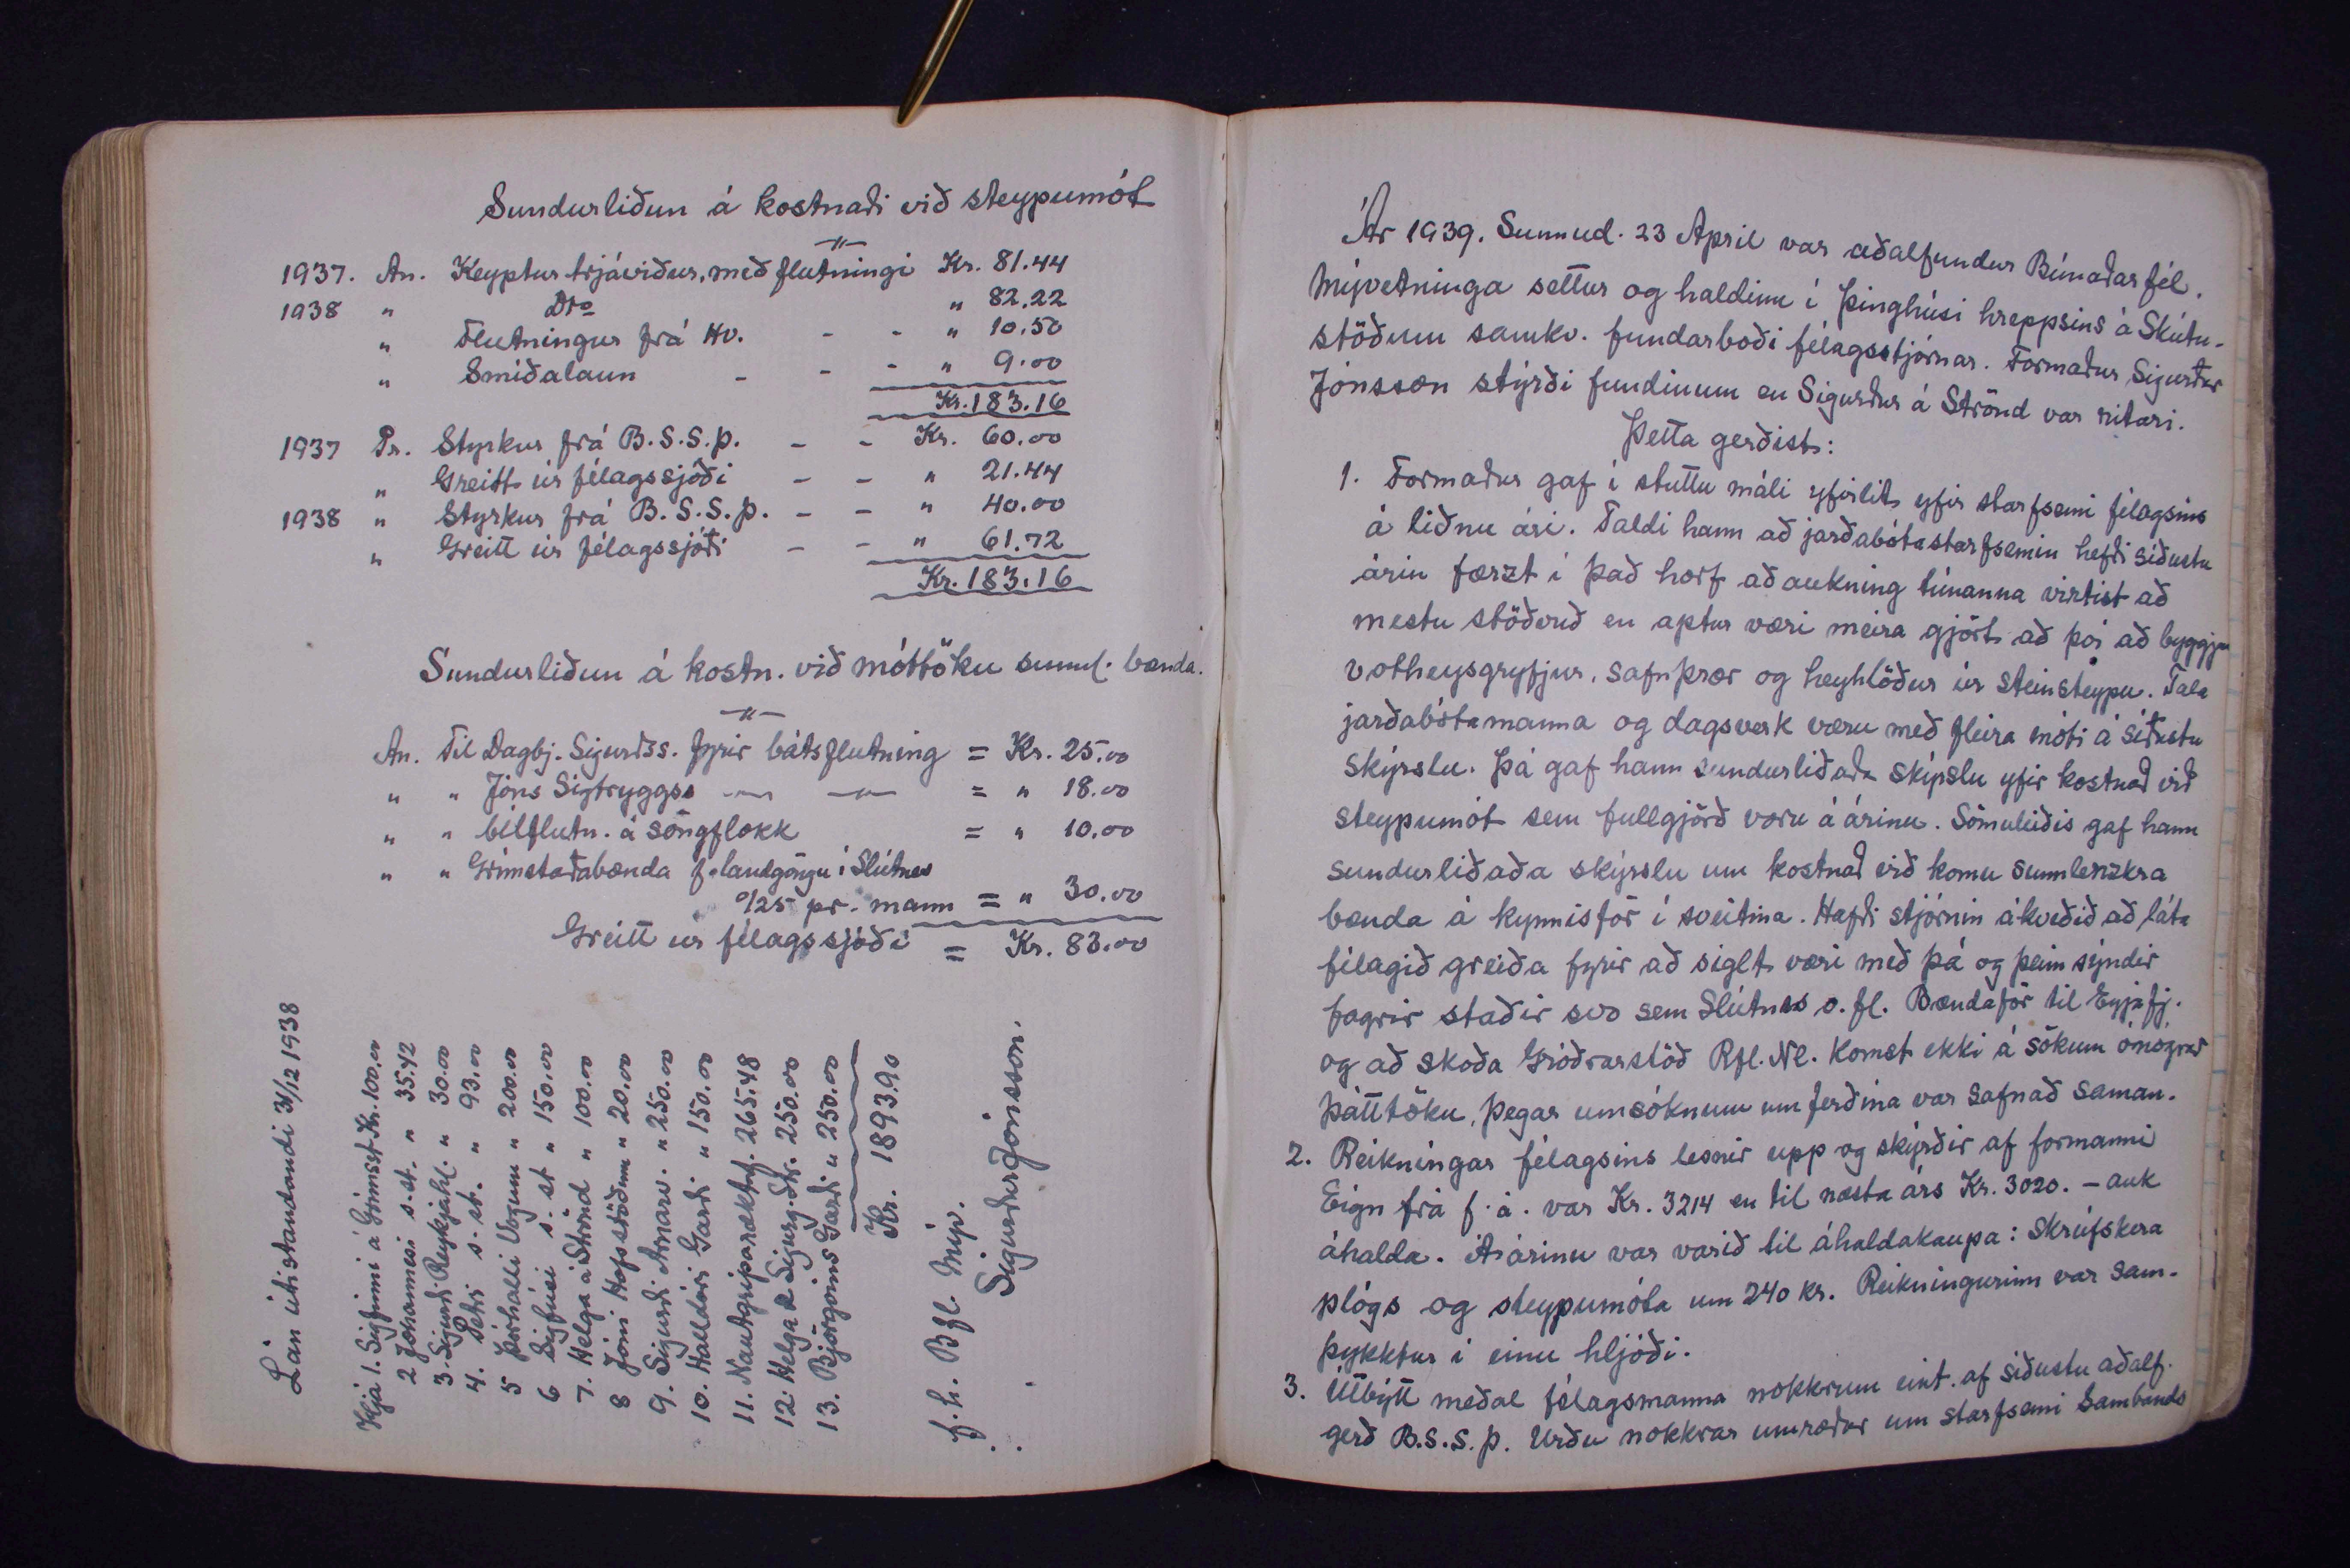 Sundurliðun á kostnaði við steypumót
—〃—
1937. An. Keyptur trjáviður, með flutningi Kr. 81.44
1938 〃 Dto 〃 82.22
〃 Flutningur frá Hv. - - 〃 10.50
〃 Smíðalaun - - - 〃 9.00
Kr. 183.16
1937 Pr. Styrkur frá B.S.S.Þ. - - Kr. 60.00
〃 Greitt úr félagssjóði - - 〃 21.44
1938 〃 Styrkur frá B.S.S.Þ. - - 〃 40.00
〃 Greitt úr félagssjóði - - 〃 61.72
Kr. 183.16
Sundurliðun á kostn. við móttöku sunnl. bænda.
—〃—
An. Til Dagbj. Sigurðss. fyrir bátsflutning = Kr. 25.00
〃 〃 Jóns Sigtryggss —〃— = 〃 18.00
〃 〃 bílflutn. á söngflokk = 〃 10.00
〃 〃 Grímstaðabænda f. landgöngu í Slútnes
0/25 pr. mann = 〃 30.00
Greitt úr félagssjóði = Kr. 83.00
Lán útistandandi 31/12 1938
Hjá 1. Sigfinni á Grímsst Kr. 100.00
2 Jóhannesi s. st. 〃 35.42
3. Sigurði Reykjahl. 〃 30.00
4. Petri s. st. 〃 93.00
5 Þórhalli Vogum 〃 200.00
6 Sigfúsi s. st 〃 150.00
7. Helga á Strönd 〃 100.00
8 Jóni Hofsstöðum 〃 20.00
9. Sigurði Arnarv. 〃 250.00
10. Halldóri Garði 〃 150.00
11. Nautgriparæktf. 265.48
12. Helga & Sigurg. Str. 250.00
13. Björgvins Garði 〃 250.00
Kr. 1893.90
f. h. Bfl. Mýv.
Sigurður Jónsson.
Ár 1939. Sunnud. 23 April var aðalfundur Búnaðarfél.
Mývetninga settur og haldinn í Þinghúsi hreppsins á Skútu-
stöðum samkv. fundarboði félagsstjórnar. Formaður Sigurður
Jónsson stýrði fundinum en Sigurður á Strönd var ritari.
Þetta gerðist:
1. Formaður gaf í stuttu máli yfirlit yfir starfsemi félagsins
á liðnu ári. Taldi hann að jarðabótastarfsemin hefði síðustu
árin færzt í það horf að aukning túnanna virtist að
mestu stöðvuð en aptur væri meira gjört að því að byggja
votheysgryfjur, safnþrær og heyhlöður úr steinsteypu. Tala
jarðabótamanna og dagsverk væru með fleira móti á síðustu
skýrslu. Þá gaf hann sundurliðaða skýrslu yfir kostnað við
steypumót sem fullgjörð voru á árinu. Sömuleiðis gaf hann
sundurliðaða skýrslu um kostnað við komu sunnlenzkra
bænda á kynnisför í sveitina. Hafði stjórnin ákveðið að láta
félagið greiða fyrir að siglt væri með þá og þeim sýndir
fagrir staðir svo sem Slútnes o. fl. Bændaför til Eyjafj.
og að skoða Gróðrarstöð Rfl. Nl. komst ekki á sökum ónógrar
þátttöku, þegar umsóknum um ferðina var safnað saman.
2. Reikningar félagsins lesnir upp og skýrðir af formanni
Eign frá f. á. var Kr. 3214 en til næsta árs Kr. 3020. - auk
áhalda. Á árinu var varið til áhaldakaupa: Skrúfskera
plógs og steypumóta um 240 kr. Reikningurinn var sam-
þykktur í einu hljóði.
3. Útbýtt meðal félagsmanna nokkrum eint. af síðustu aðalf.
gerð B.S.S.Þ. Urðu nokkrar umræður um starfsemi Sambands